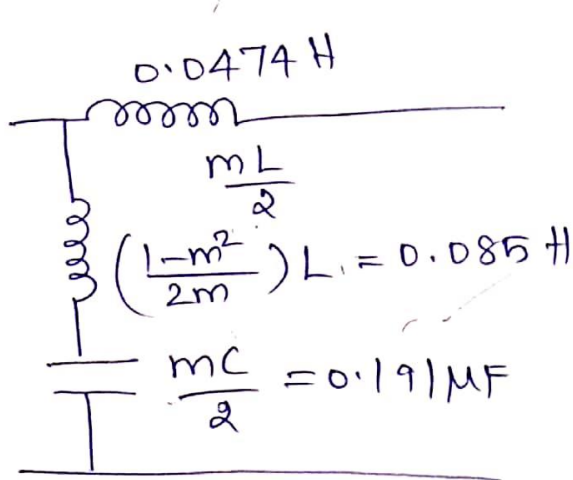 0.0474 H
mL/2
((1-m²)/2m) L = 0.085 H
mC/2 = 0.191 μF